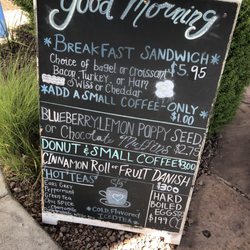 Good Morning
*BREAKFAST SANDWICH*
Choice of bagel or croissant $5.95
Bacon, Turkey, or Ham
Swiss or Cheddar
*ADD A SMALL COFFEE-ONLY
$1.00
BLUEBERRY LEMON POPPY SEED
or Chocolate Muffins $2.75
DONUT & SMALL COFFEE $3.00
CINNAMON ROLL or FRUIT DANISH
$3.00
HOT TEAS
Earl Grey
Peppermint
Green Tea
Chai Spice
COLD, Flavored
ICED TEA
HARD
BOILED
EGGS
$1.99